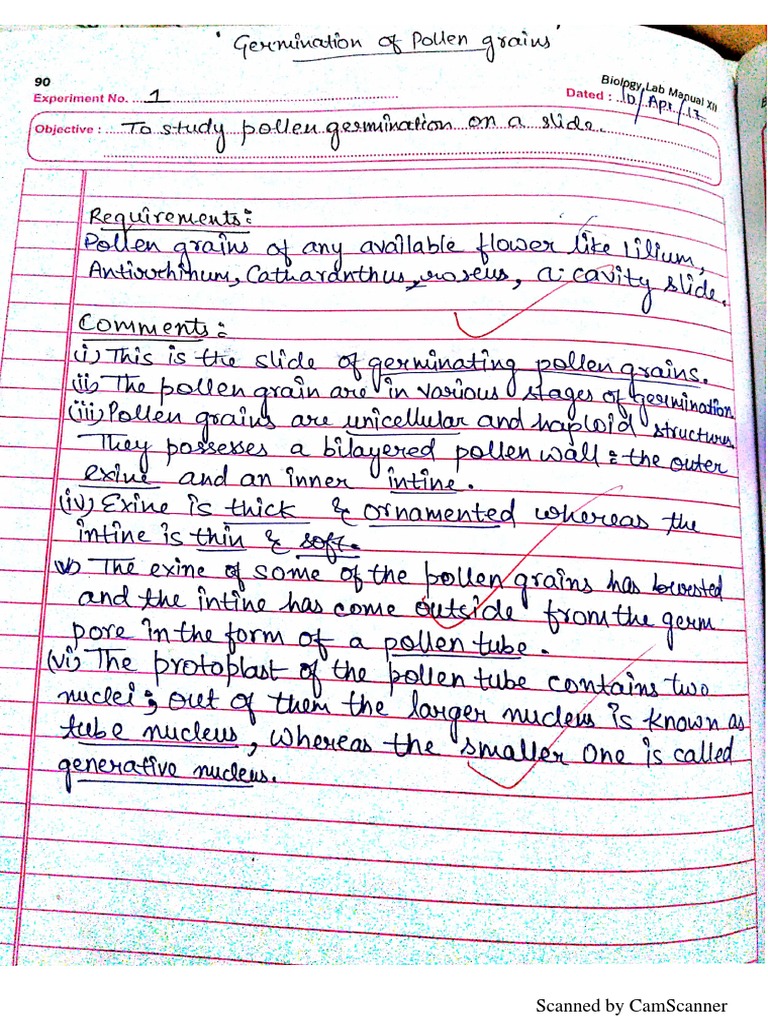 ' Germination of Pollen grains '
90
Biology Lab Manual XII
Experiment No. 1
Dated : 10/Apr/17
Objective : To study pollen germination on a slide.
Requirements:
Pollen grains of any available flower like Lilium,
Antirrhinum, Catharanthus, roseus, a cavity slide.
Comments:
(i) This is the slide of germinating pollen grains.
(ii) The pollen grain are in various stages of germination
(iii) Pollen grains are unicellular and haploid structures.
They possesses a bilayered pollen wall : the outer
exine and an inner intine.
(iv) Exine is thick & ornamented whereas the
intine is thin & soft.
v) The exine of some of the pollen grains has
and the intine has come outside from the germ
pore in the form of a pollen tube.
(vi) The protoplast of the pollen tube contains two
nuclei; out of them the larger nucleus is known as
tube nucleus, whereas the smaller one is called
generative nucleus.
Scanned by CamScanner